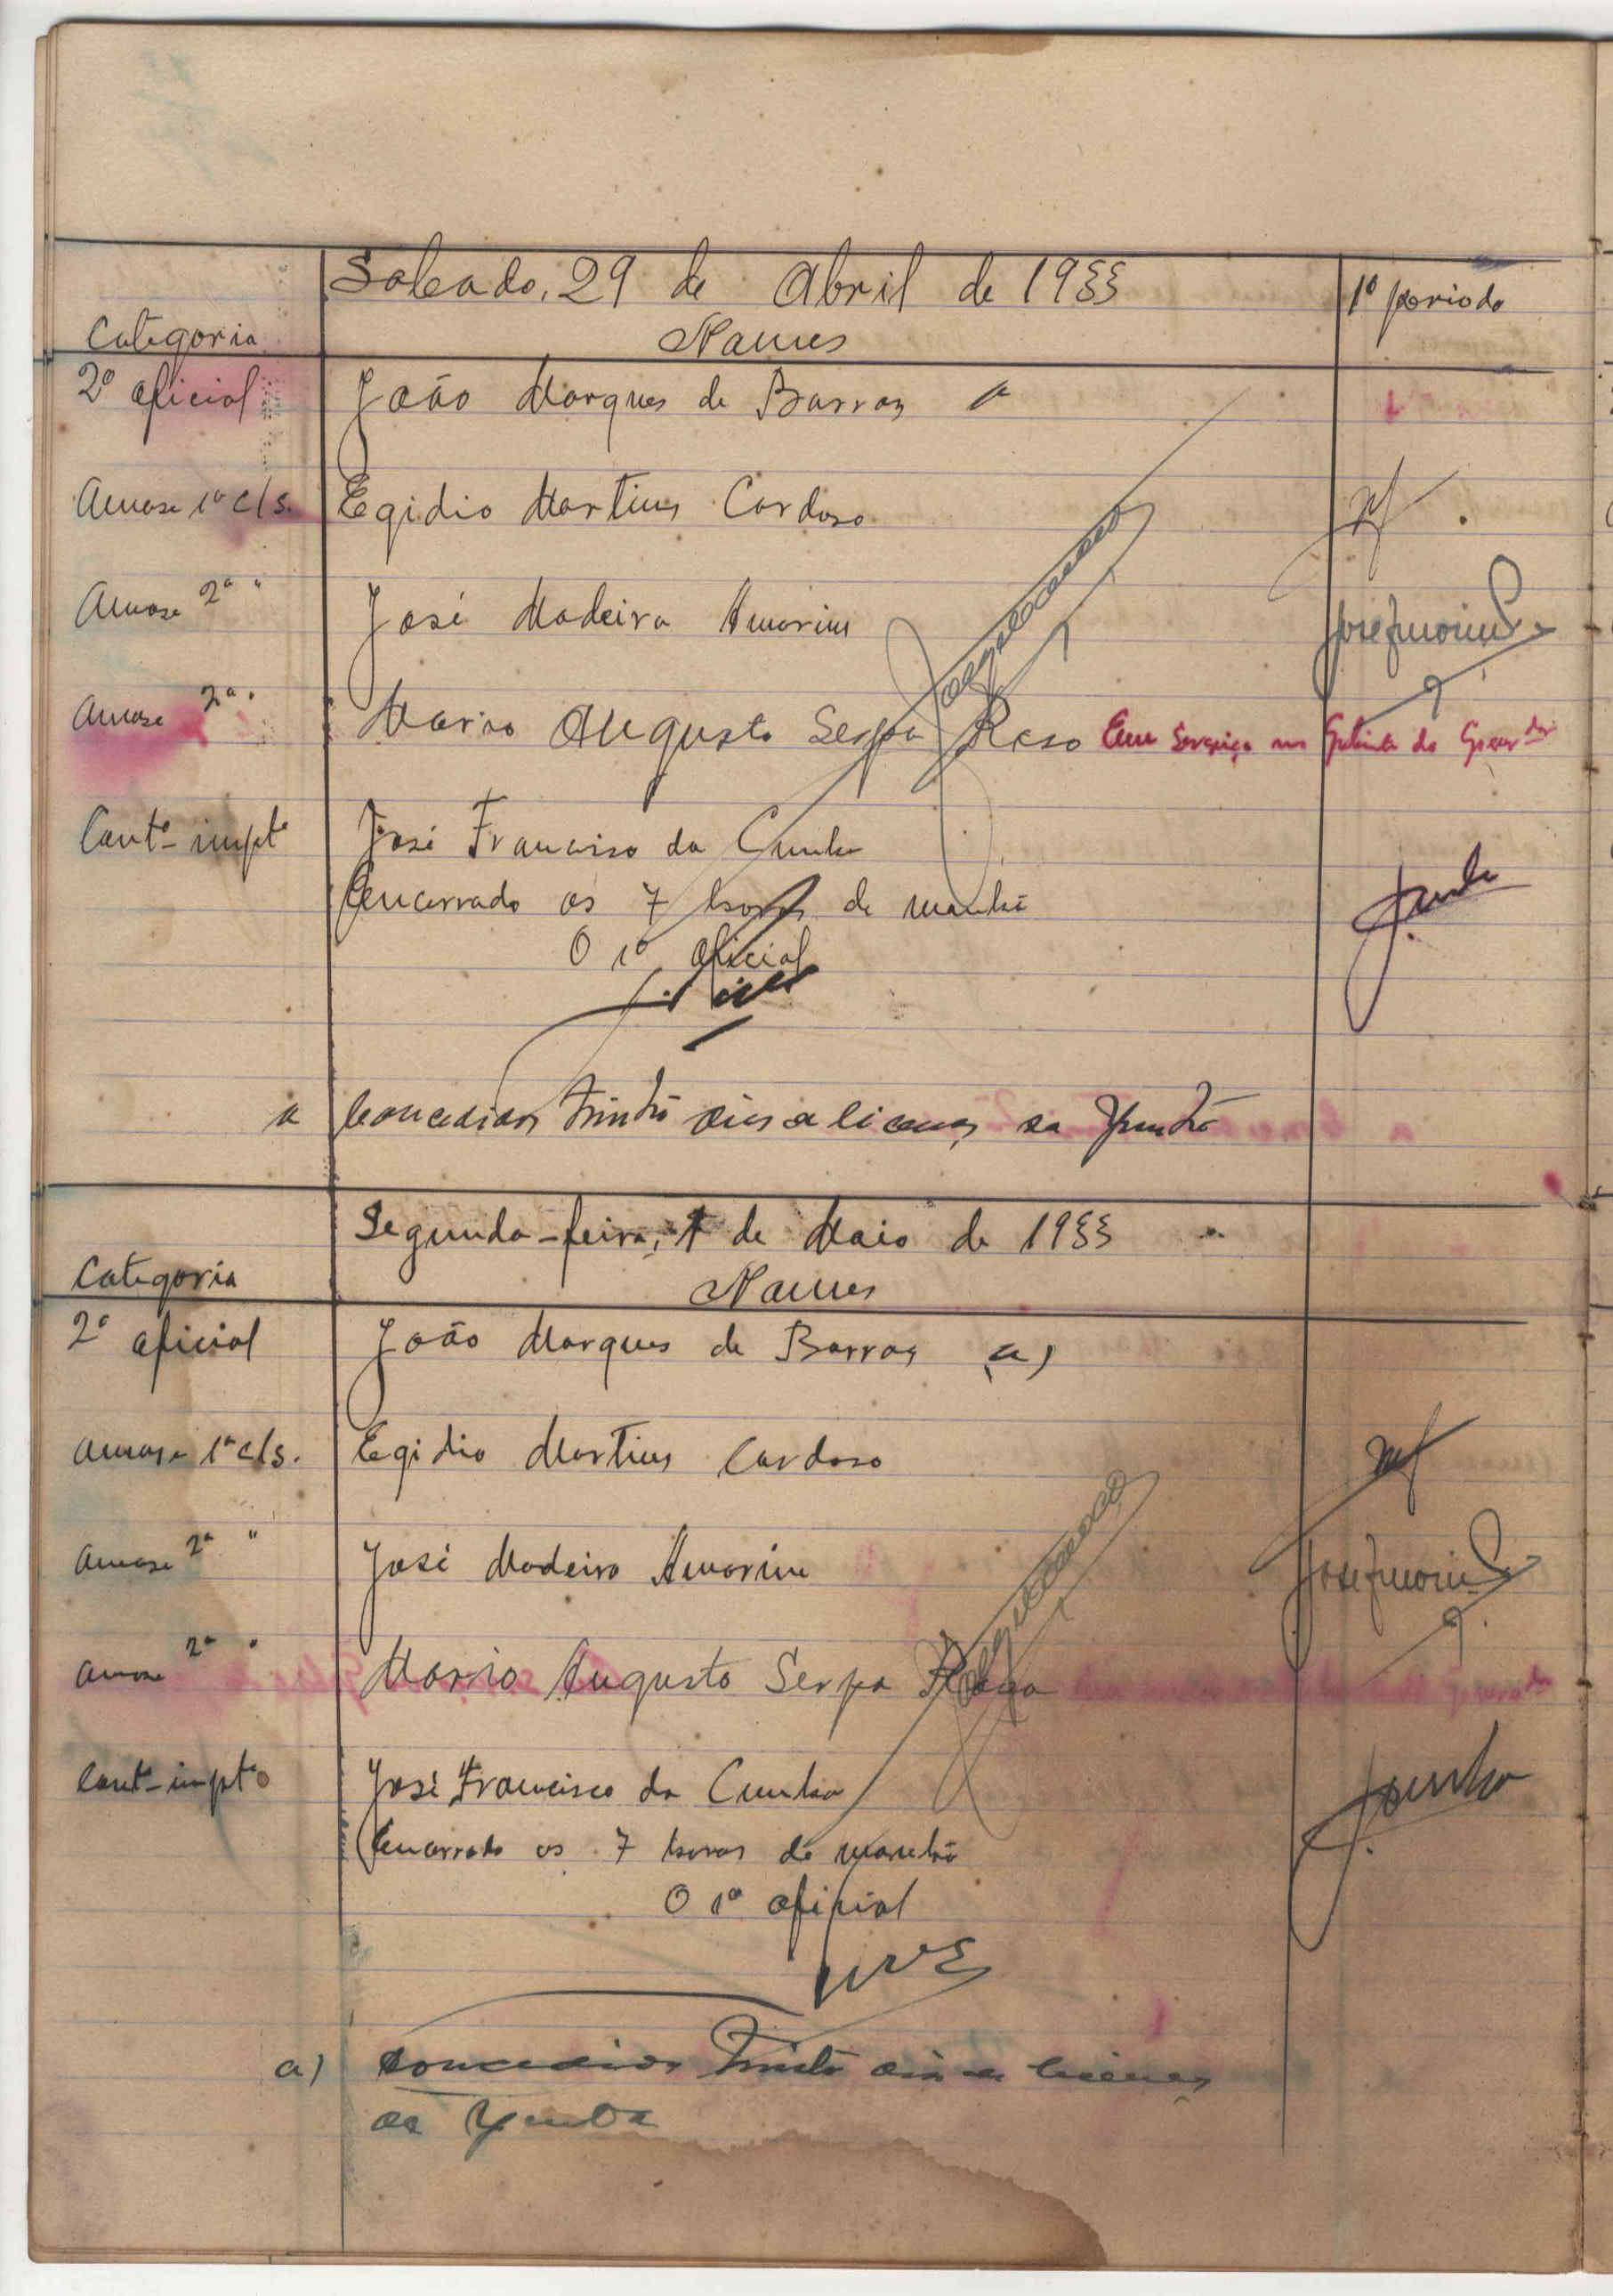 Sabado, 29 de Abril de 1933
1º periodo
Categoria
Nomes
2º oficial João Marques de Barros a
Amase 1ª cls. Egidio Martins Cardoso
Amase 2ª " José Madeira Amorim
Amase 2ª " Mario Augusto Serpa Rosa Em Serviço no Gabinete do Governador
Contº impº José Francisco da Cunha
Encerrado os 7 horas de manhã
O 1º oficial
a Concedidos trinta dias de licença da Junta
Segunda-feira, 1 de Maio de 1933
Categoria
Nomes
2º oficial João Marques de Barros a)
Amase 1ª cls. Egidio Martins Cardoso
Amase 2ª " José Madeira Amorim
Amase 2ª " Mario Augusto Serpa Rosa
Contº imptº José Francisco da Cunha
Encerrado os 7 horas da manhã
O 1º oficial
a) Concedidos trinta dias de licença
da Junta